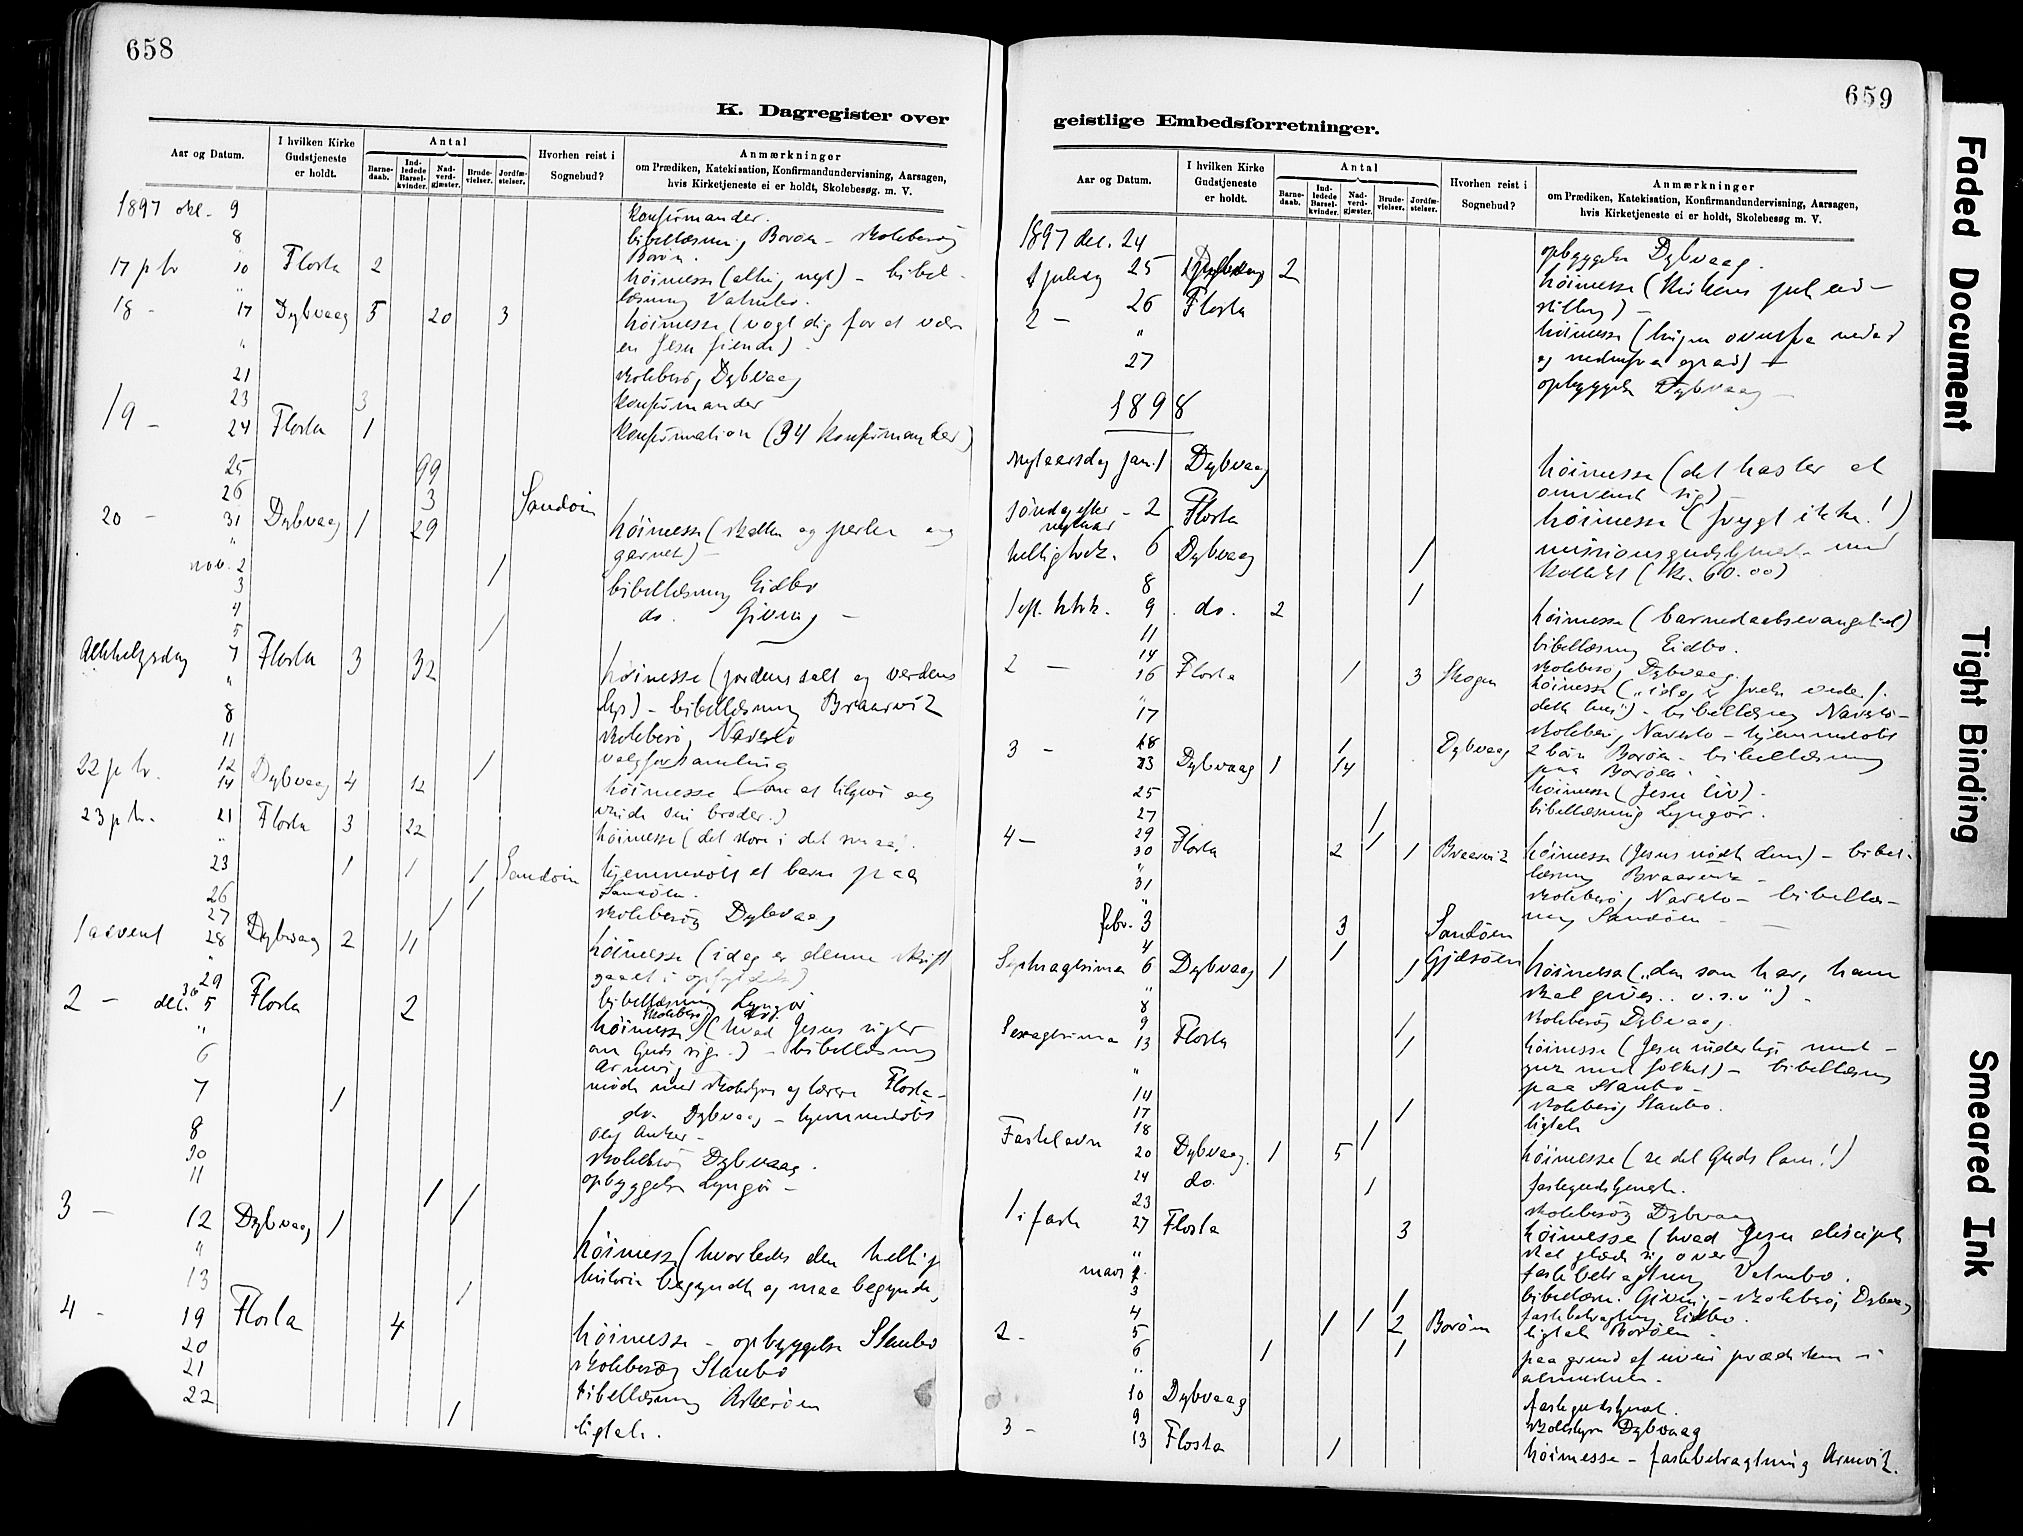 658
K. Dagregister over
Aar og Datum. I hvilken Kirke Gudstjeneste er holdt. Antal Barnedaab. Indledede Barselkvinder. Nadverdgjæster. Brudevielser. Jordfæstelser. Hvorhen reist i Sognebud? Anmærkninger om Prædiken, Katekisation, Konfirmandundervisning, Aarsagen, hvis Kirketjeneste ei er holdt, Skolebesøg. m. V.
1897 okt. 9 konfirmander.
8 bibellæsning Borøen - skolebesøg
Borøen.
17 p tr 10 Flosta 2 høimesse (alting nyt) - bibel-
" læsning Vatnebo.
18 - 17 Dybvaag 5 20 3 høimesse (vogt dig for at være
" en Jesu fiende)
21 skolebesøg Dybvaag
23 3 konfirmander
19 - 24 Flosta 1 konfirmation (34 konfirmander)
25 99
26 3 Sandøen
20 - 31 Dybvaag 1 29 høimesse (skatten og perlen og
" garnet) -
nov. 2 1 bibellæsning Eidbo
3 do. Giving -
4
5 1
Allehelgsdag 7 Flosta 3 32 høimesse (jordens salt og verdens
" lys) - bibellæsning Braarvik
8 skolebesøg Narestø
11 valgforsamling
12 1
22 p tr. 14 Dybvaag 4 12 høimesse (om at tilgive og
vinde sin broder.)
23 p tr. 21 Flosta 3 22 høimesse (det store i det smaa).
"
23 1 1 1 Sandøen hjemmedøbt et barn paa
Sandøen.
26 1 skolebesøg Dybvaag
27 1
1 advent 28 Dybvaag 2 11 høimesse (idag er denne skrift
" gaaet i opfyldelse)
29 bibellæsning Lyngør
30 skolebesøg
2 - dec. 5 Flosta 2 høimesse (hvad Jesus siger
" om Guds rige.) - bibellæsning
6 Arnevig
7 1 møde med skolestyre og lærere Flosta -
do. Dybvaag - hjemmedøbt
8
30 skolebesøg Dybvaag.
11 1 1 opbyggelse Lyngør -
3 - 12 Dybvaag 1 1 høimesse (hvorledes den hellige
" historie begyndte og maa begynde,
13 1
4 - 19 Flosta 4 høimesse - opbyggelse Staubo
20 skolebesøg Staubo
21 bibellæsning Askerøen
22 1 ligtale.
659
geistlige Embedsforretninger.
Aar og Datum. I hvilken Kirke Gudstjeneste er holdt. Antal Barnedaab. Indledede Barselkvinder. Nadverdgjæster. Brudevielser. Jordfæstelser. Hvorhen reist i Sognebud? Anmærkninger om Prædiken, Katekisation, Konfirmandundervisning, Aarsagen, hvis Kirketjeneste ei er holdt, Skolebesøg m. V.
1897 dec. 24 opbyggelse Dybvaag.
1 juledag 25 Dybvaag 2 høimesse (Kirkens jule ud-
stilling) -
2 - 26 Flosta høimesse (krigen ovenfra nedad
" og nedenfra opad) -
27 opbyggelse Dybvaag -
1898
nytaarsdag jan. 1 Dybvaag høimesse (det haster at
omvende sig) -
søndag efter nytaar - 2 Flosta høimesse (frygt ikke!)
helligtrek. 6 Dybvaag 1 missionsgudstjeneste med
kollekt (kr. 60.00)
8 1
1 eft. htrk. 9 do. 2 høimesse (barnedaabsevangeliet)
11 bibellæsning Eidbo.
14 skolebesøg Dybvaag.
2 - 16 Flosta 1 3 Skogen høimesse
" bibellæsning Narestø -
17 skolebesøg Narestø - hjemmedøbt
18 1 Dybvaag 2 børn Borøen - bibellæsning
paa Borøen.
3 - 23 Dybvaag 1 14 høimesse (Jesu liv).
25 bibellæsning Lyngør.
27 1
29 1
4 - 30 Flosta 2 1 Braarvik høimesse (Jesus nødte dem) - bibel-
" læsning Braarvik -
31 skolebesøg Narestø - bibellæs-
" ning Sandøen -
febr. 3 3 Sandøen
4 1 Gjesøen
Septuagesima 6 Dybvaag 1 1 høimesse („den som har, ham
" skal gives.. o.s.v") -
8 skolebesøg Dybvaag.
9 1
Sexagesima 13 Flosta 1 høimesse (Jesu inderlige med-
" ynk med folket) - bibellæsning
paa Staubo -
14 skolebesøg Staubo.
17 1 ligtale
18 1
Fastelavn 20 Dybvaag. 1 5 høimesse (se det Guds lam!)
24 do. 1 fastegudstjeneste.
23 skolebesøg Dybvaag
1 i faste 27 Flosta 3 høimesse (hvad Jesu disciple
" skal glæde sig over -)
mars 1 fastebetragtning Vatnebo.
3 1 bibellæsn. Giving - skolebesøg Dybvaag
4 1 1 2 Borøen fastebetragtning Eidbo.
5 ligtale Borøen -
2 - 6 1 1 paa grund af uveir prædiken i
" almuskolen -
10 Dybvaag fastegudstjeneste.
9 skolestyre Dybvaag
3 - 13 Flosta 1 høimesse - fastebetragtning Arnevik.
Faded Document
Tight Binding
Smeared Ink